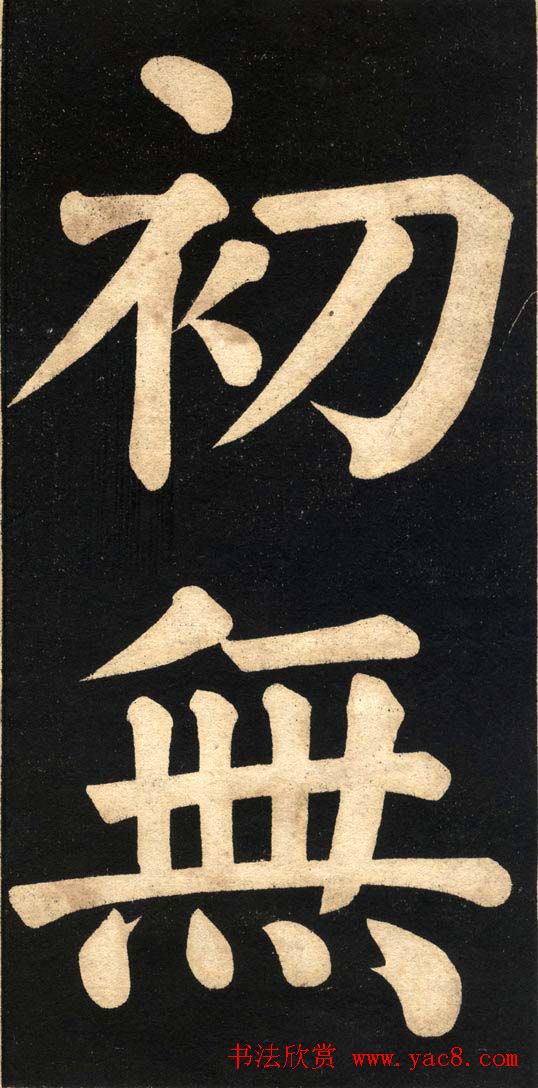 初
無
书法欣赏 www.yac8.com